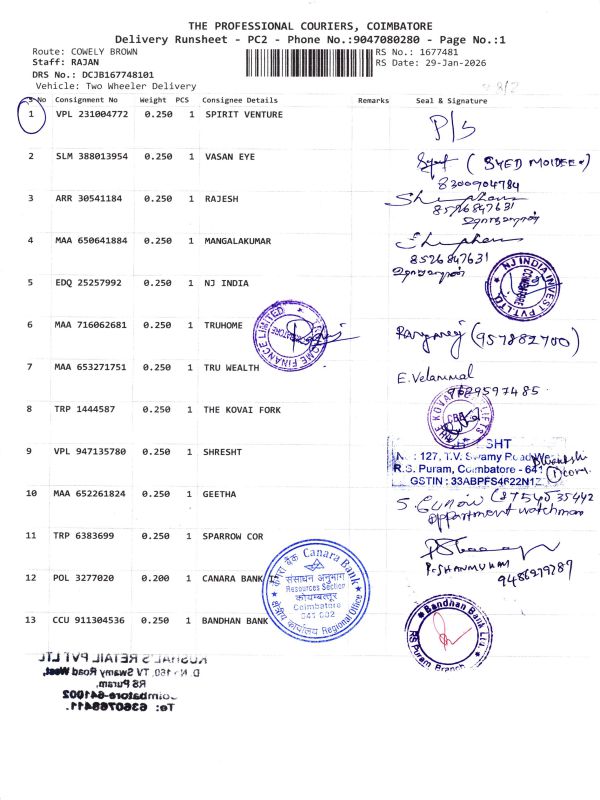 THE PROFESSIONAL COURIERS, COIMBATORE
Delivery Runsheet - PC2 - Phone No.:9047080280 - Page No.:1
Route: COWELY BROWN
RS No.: 1677481
Staff: RAJAN
RS Date: 29-Jan-2026
DRS No.: DCJB167748101
Vehicle: Two Wheeler Delivery
S No Consignment No Weight PCS Consignee Details Remarks Seal & Signature
1 VPL 231004772 0.250 1 SPIRIT VENTURE P/S
2 SLM 388013954 0.250 1 VASAN EYE
(SYED MOIDEEN)
8300904784
3 ARR 30541184 0.250 1 RAJESH
8526847631
4 MAA 650641884 0.250 1 MANGALAKUMAR
8526847631
5 EDQ 25257992 0.250 1 NJ INDIA
NJ INDIA INVEST PVT LTD
COIMBATORE
6 MAA 716062681 0.250 1 TRUHOME
HOME FINANCE LIMITED
COIMBATORE
(957882700)
7 MAA 653271751 0.250 1 TRU WEALTH
E. Velammal
7629597485
8 TRP 1444587 0.250 1 THE KOVAI FORK
THE KOVAI LIFTS
CBE
9 VPL 947135780 0.250 1 SHRESHT
SHT
127, T.V. Swamy Road West
R.S. Puram, Coimbatore - 641
GSTIN : 33ABPFS4622N1Z
10 MAA 652261824 0.250 1 GEETHA
8754535442
appartment watchman
11 TRP 6383699 0.250 1 SPARROW COR
P. SHANMUKAM
9486279289
12 POL 3277020 0.200 1 CANARA BANK
केनरा बैंक Canara Bank
संसाधन अनुभाग
Resources Section
कोयम्बत्तूर
Coimbatore
641 002
क्षेत्रीय कार्यालय Regional Office
13 CCU 911304536 0.250 1 BANDHAN BANK
Bandhan Bank Ltd.
RS Puram Branch
KUSHAL'S RETAIL PVT LTD
D. No 160, TV Swamy Road West,
RS Puram,
Coimbatore-641002
Tel: 6360768411.